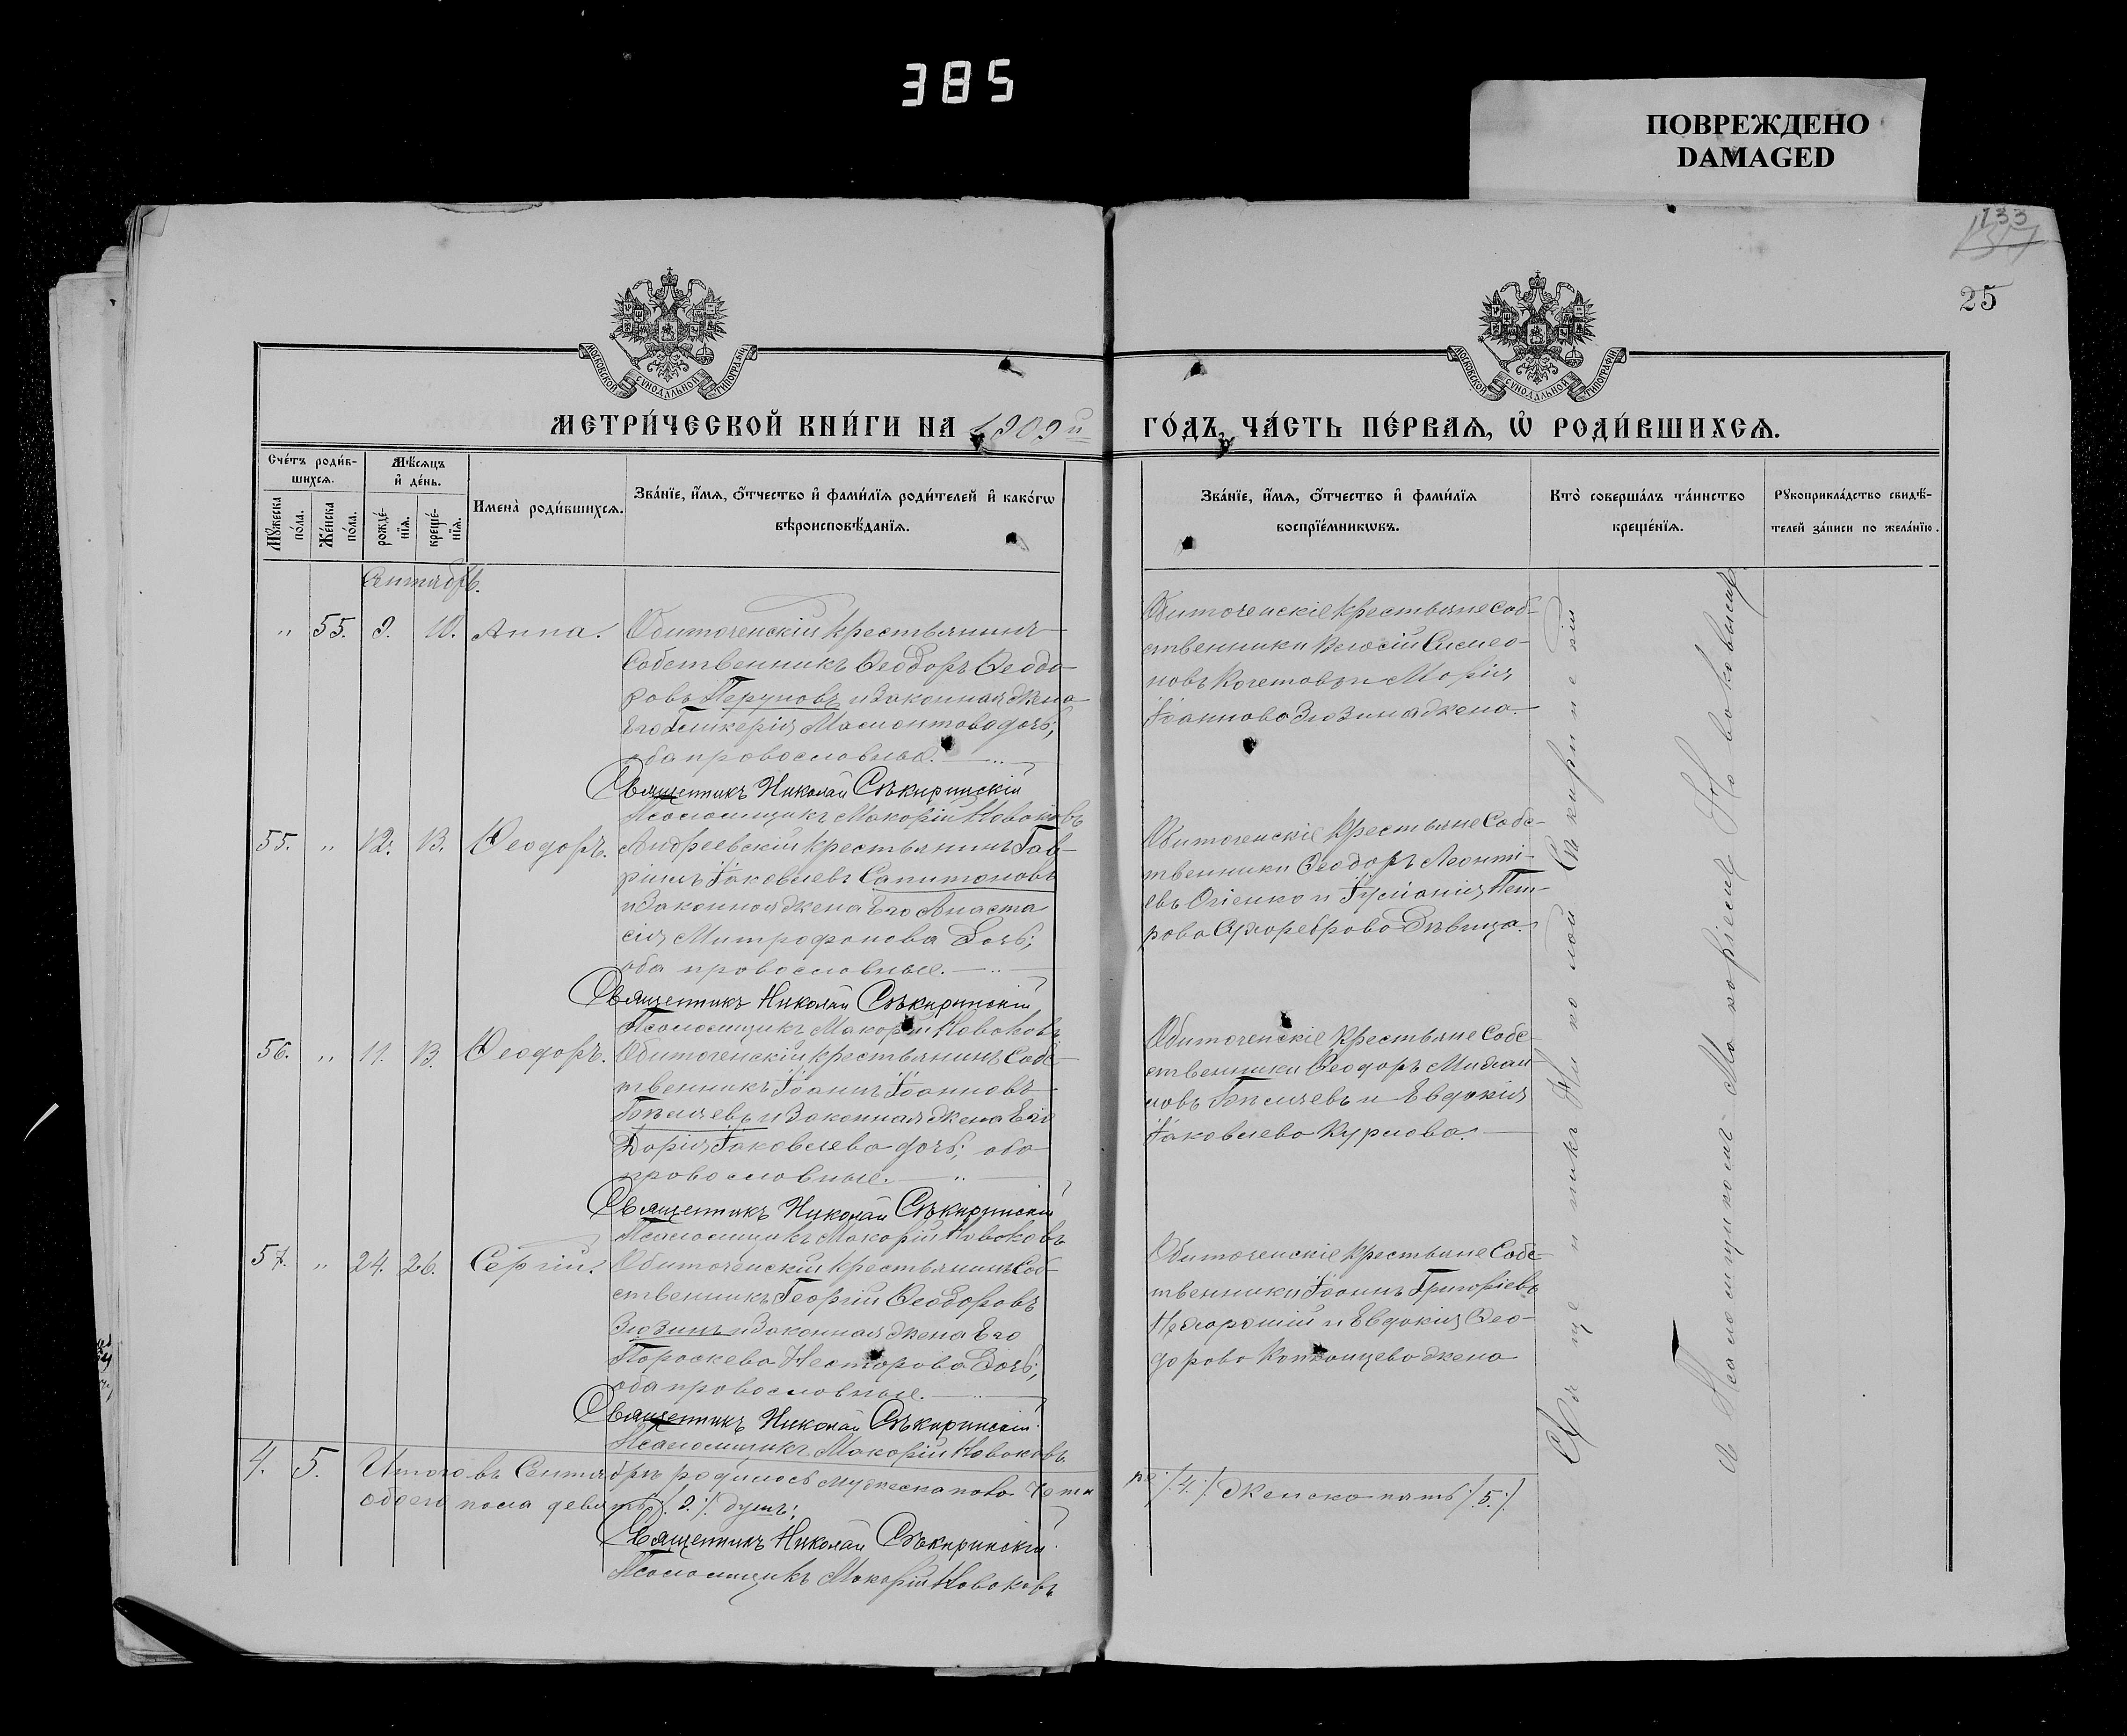 385
ПОВРЕЖДЕНО
DAMAGED
133
25
МОСКОВСКОЙ СѴНОДАЛЬНОЙ ТИПОГРАФІИ
МОСКОВСКОЙ СѴНОДАЛЬНОЙ ТИПОГРАФІИ
МЕТРИ́ЧЕСКОЙ КНИ́ГИ НА 1909й ГО́ДЪ, ЧА́СТЬ ПЕ́РВАѦ, Ѽ РОДИ́ВШИХСѦ.
Сче́тъ роди́вшихсѧ.
Мꙋ́жеска по́ла.
Же́нска по́ла.
Мѣ́сѧцъ и҆ де́нь.
рожде́нїѧ.
креще́нїѧ.
Имена̀ роди́вшихсѧ.
Зва́нїе, и҆́мѧ, ѻ҆́тчество и҆ фами́лїѧ роди́телей и҆ како́гѡ
вѣроисповѣ́данїѧ.
Зва́нїе, и҆́мѧ, ѻ҆́тчество и҆ фами́лїѧ
воспрїе́мникѡвъ.
Кто̀ соверша́лъ та́инство
креще́нїѧ.
Рꙋкоприкла́дство свидѣ́-
телей за́писи по жела́нїю.
Сентябрь.
" 55. 9. 10. Анна. Обиточенскій крестьянинъ
Собственникъ Ѳеодоръ Ѳеодо-
ровъ Перуновъ и законная жена
его Гликерія Маліонтова дочь;
оба православные.
Священникъ Николай Сѣкиринскій
Псаломщикъ Макарій Новоковъ
Обиточенскіе крестьяне соб-
ственники Симео-
новъ Кочетовъ и Марія
Іоаннова Зюзина жена.
55. " 12. 13. Ѳеодоръ. Андреевскій крестьянинъ Гав-
ріилъ Іаковлевъ Сапитоновъ
и законная жена его Анаста
сія Митрофанова дочь;
оба православные.
Священникъ Николай Сѣкиринскій
Псаломщикъ Макарій Новоковъ
Обиточенскіе крестьяне Собс-
твенники Ѳеодоръ Леонті-
евъ и Іуліанія Пет-
рова дѣвица.
56. " 11. 13. Ѳеодоръ. Обиточенскій крестьянинъ Собс-
твенникъ Іоаннъ Іоанновъ
и законная жена его
Дарія Іаковлева дочь; оба
православные.
Священникъ Николай Сѣкиринскій
Псаломщикъ Макарій Новоковъ
Обиточенскіе крестьяне Собс-
ственники Ѳеодоръ Михаи-
ловъ и Евдокія
Іаковлева Курлова.
57. " 24. 26. Сергій. Обиточенскій крестьянинъ Соб-
ственникъ Георгій Ѳеодоровъ
Зюзинъ и законная жена его
Параскева Несторова дочь;
оба православные.
Священникъ Николай Сѣкиринскій
Псаломщикъ Макарій Новоковъ.
Обиточенскіе крестьяне Собс-
твенники Іоаннъ Григоріевъ
и Евдокія Ѳео-
дорова жена
Священникъ Николай Сѣкиринскій
и Псаломщикомъ Макаріемъ Новоковымъ
4. 5. Итого въ Сентябрѣ родилось мужеска пола четы ре /.4./ женска пять /.5./
обоего пола девять /.9./ душъ;
Священникъ Николай Сѣкиринскій.
Псаломщикъ Макарій Новоковъ